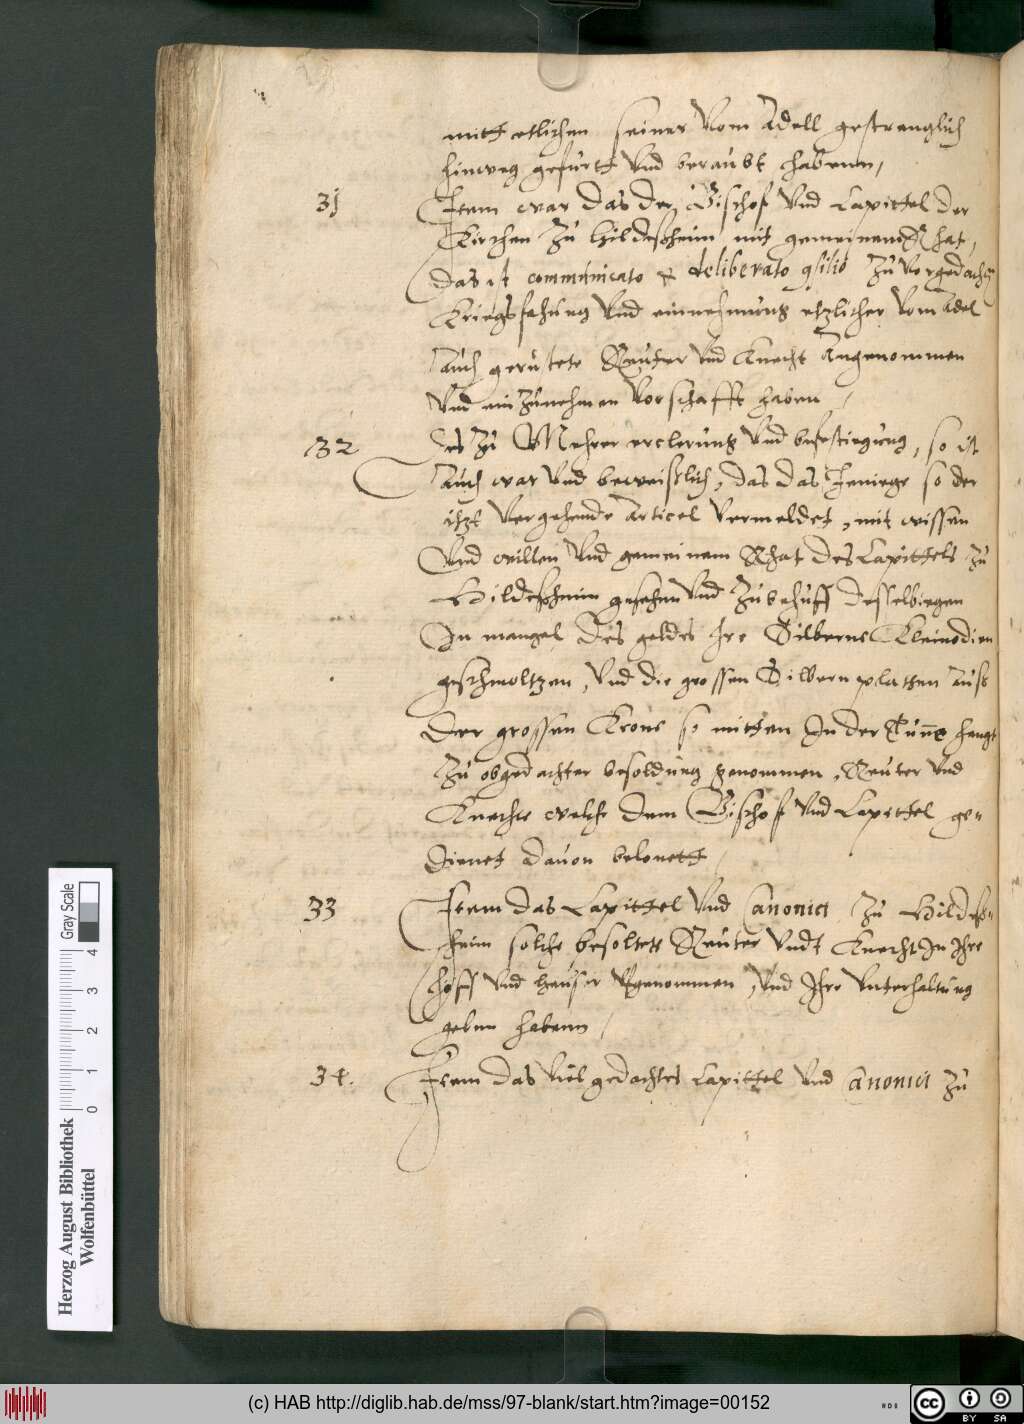 mitt etlichen seiner vom Adell gefrenglich
hinweg gefurtt vnd beraubt habenn,
31 Item war das der Bischof vnd Capittel der
Kirchen zu Hildesheim mit gemeinem Rhat,
das ist communicato et deliberato consilio zu vorgedachter
Kriegsfehung vnd einnehmung etzlicher vom Adel
Auch gerustete Reuter vnd Knecht Angenommen
vnd einzunehmen vorschafft haben /
32 Des zu Mehrer erclerung vnd befestigung, so ist
Auch war vnd beweislich, das das Jeniege so der
itzt vorgehende Articel vermeldet, mit wissen
vnd willen vnd gemeinem Rhat des Capittels zu
Hildeßheim geschehen vnd zu behuff desselbiegen
In mangel des geldes Ire Silberne Kleinodien
geschmoltzen, vnd die grossen Silbern platten Auß
Der grossen Krone so mitten In der hengt
zu obgedachter besoldung genommen, Reuter vnd
Knechte welche dem Bischof vnd Capittel ge-
dienet dauon belonett /
33 Item das Capittel vnd Canonici zu Hildeß-
heim solche besoltete Reuter vndt Knecht In Ihre
hoff vnd heuser genommen, vnd Ihre vnterhaltung
geben habenn /
34. Item das viel gedachtes Capittel vnd Canonici zu
Herzog August Bibliothek
Wolfenbüttel
0 1 2 3 4
Gray Scale
(c) HAB http://diglib.hab.de/mss/97-blank/start.htm?image=00152
HAB
cc BY SA